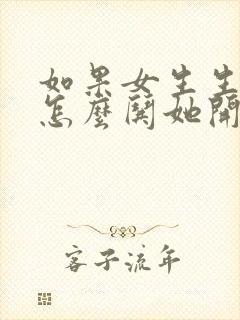 如果女生生
怎麼鬨她開
客子流年